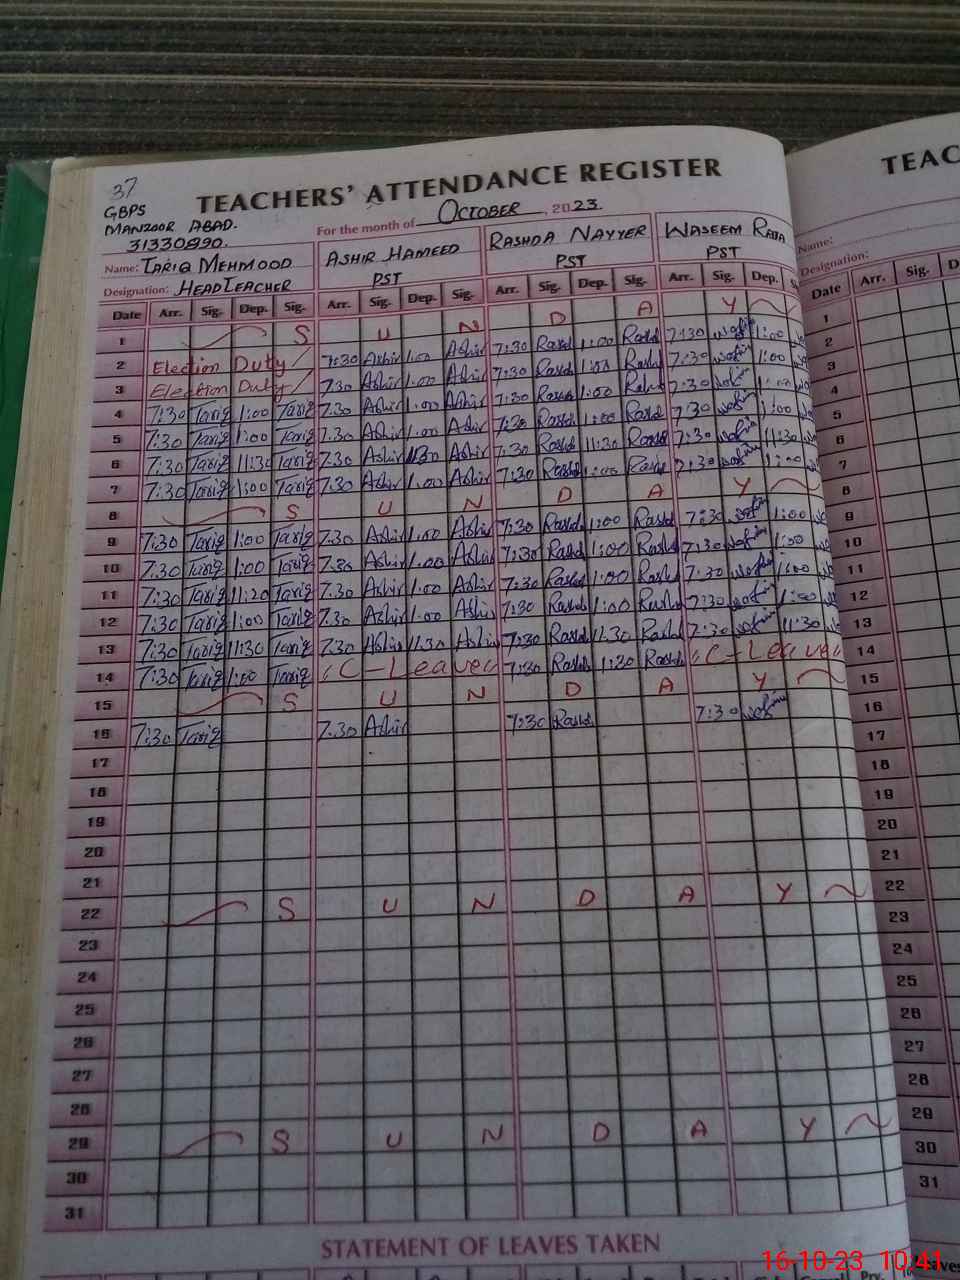 37
GBPS
MANZOOR ABAD.
31330890.
TEACHERS' ATTENDANCE REGISTER
For the month of OCTOBER, 2023.
Name: TARIQ MEHMOOD
Designation: HEADTEACHER
ASHIR HAMEED
PST
RASHDA NAYYER
PST
WASEEM RAZA
PST
Date Arr. Sig. Dep. Sig. Arr. Sig. Dep. Sig. Arr. Sig. Dep. Sig. Arr. Sig. Dep. S
1 S U N D A Y
2 Election Duty 7:30 Ashir 1:00 Ashir 7:30 Rashd 1:00 Rashd 7:30 1:00
3 Election Duty 7:30 Ashir 1:00 Ashir 7:30 Rashd 1:00 Rashd 7:30 1:00
4 7:30 Tariq 1:00 Tariq 7:30 Ashir 1:00 Ashir 7:30 Rashd 1:00 Rashd 7:30 1:00
5 7:30 Tariq 1:00 Tariq 7:30 Ashir 1:00 Ashir 7:30 Rashd 1:00 Rashd 7:30 1:00
6 7:30 Tariq 11:30 Tariq 7:30 Ashir 11:30 Ashir 7:30 Rashd 11:30 Rashd 7:30 11:30
7 7:30 Tariq 1:00 Tariq 7:30 Ashir 1:00 Ashir 7:30 Rashd 1:00 Rashd 7:30 1:00
8 S U N D A Y
9 7:30 Tariq 1:00 Tariq 7:30 Ashir 1:00 Ashir 7:30 Rashd 1:00 Rashd 7:30 1:00
10 7:30 Tariq 1:00 Tariq 7:30 Ashir 1:00 Ashir 7:30 Rashd 1:00 Rashd 7:30 1:00
11 7:30 Tariq 11:20 Tariq 7:30 Ashir 1:00 Ashir 7:30 Rashd 1:00 Rashd 7:30 1:00
12 7:30 Tariq 1:00 Tariq 7:30 Ashir 1:00 Ashir 7:30 Rashd 1:00 Rashd 7:30 1:00
13 7:30 Tariq 11:30 Tariq 7:30 Ashir 11:30 Ashir 7:30 Rashd 11:30 Rashd 7:30 11:30
14 7:30 Tariq 1:00 Tariq "C-Leave" 7:30 Rashd 1:30 Rashd "C-Leave"
15 S U N D A Y
16 7:30 Tariq 7:30 Ashir 7:30 Rashd 7:30
17
18
19
20
21
22 S U N D A Y
23
24
25
26
27
28
29 S U N D A Y
30
31
STATEMENT OF LEAVES TAKEN
TEAC
Name:
Designation:
Date Arr. Sig. D
1
2
3
4
5
6
7
8
9
10
11
12
13
14
15
16
17
18
19
20
21
22
23
24
25
26
27
28
29
30
31
16-10-23 10:41